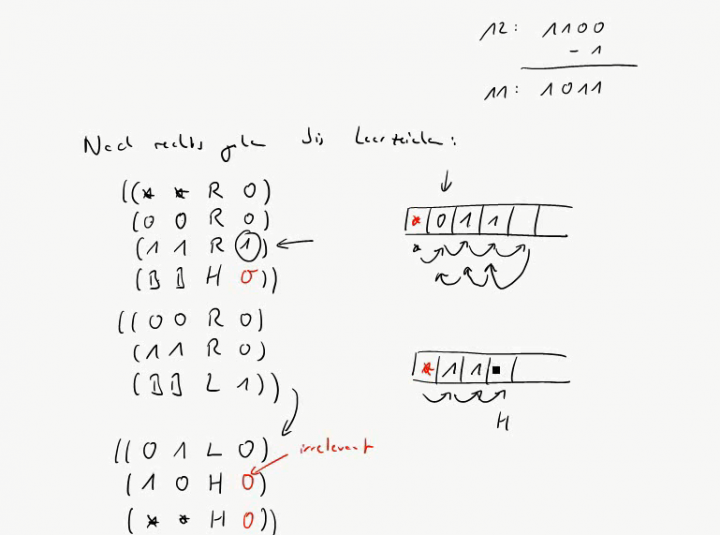 12: 1100
- 1
11: 1011
Nach rechts gehen bis Leerzeichen:
((* * R 0)
(0 0 R 0)
(1 1 R 1)
(B B H 0))
* 0 1 1
*
((0 0 R 0)
(1 1 R 0)
(B B L 1))
* 1 1 ■
H
((0 1 L 0)
irrelevant
(1 0 H 0)
(* * H 0))